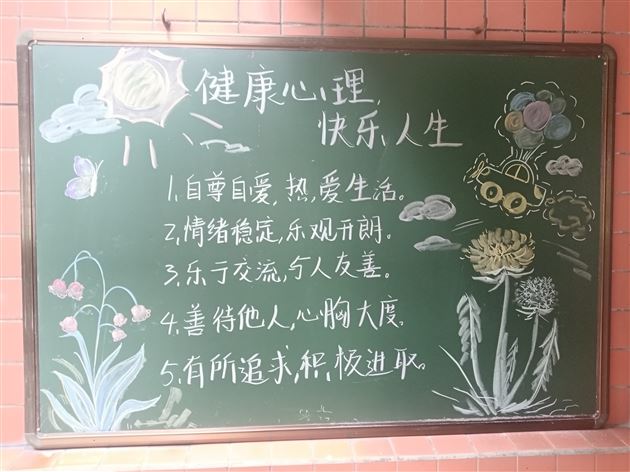 健康心理,
快乐人生
1.自尊自爱,热,爱生活。
2.情绪稳定,乐观开朗。
3.乐于交流,与人友善。
4.善待他人,心胸大度。
5.有所追求,积,极进取。